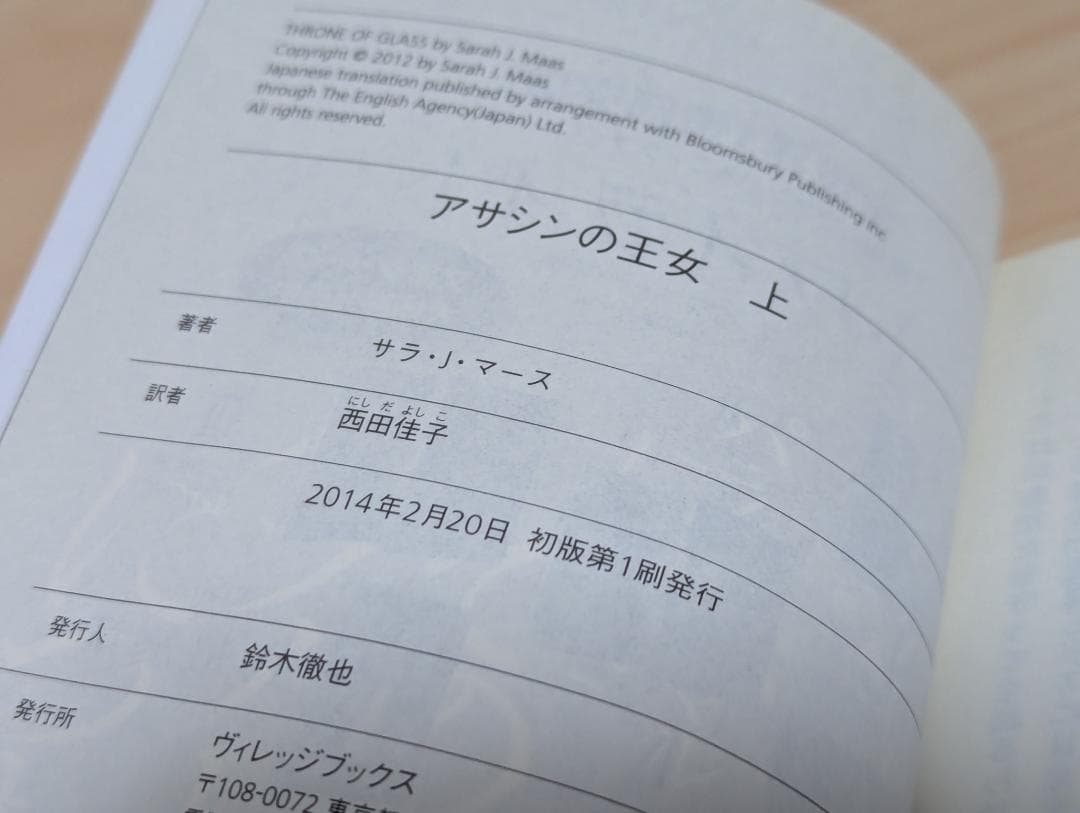 THRONE OF GLASS by Sarah J. Maas
Copyright © 2012 by Sarah J. Maas
Japanese translation published by arrangement with Bloomsbury Publishing Inc
through The English Agency(Japan) Ltd.
All rights reserved.
アサシンの王女 上
著者 サラ・J・マース
訳者 西田佳子
にし だ よし こ
2014年2月20日 初版第1刷発行
発行人 鈴木徹也
発行所 ヴィレッジブックス
〒108-0072 東京都